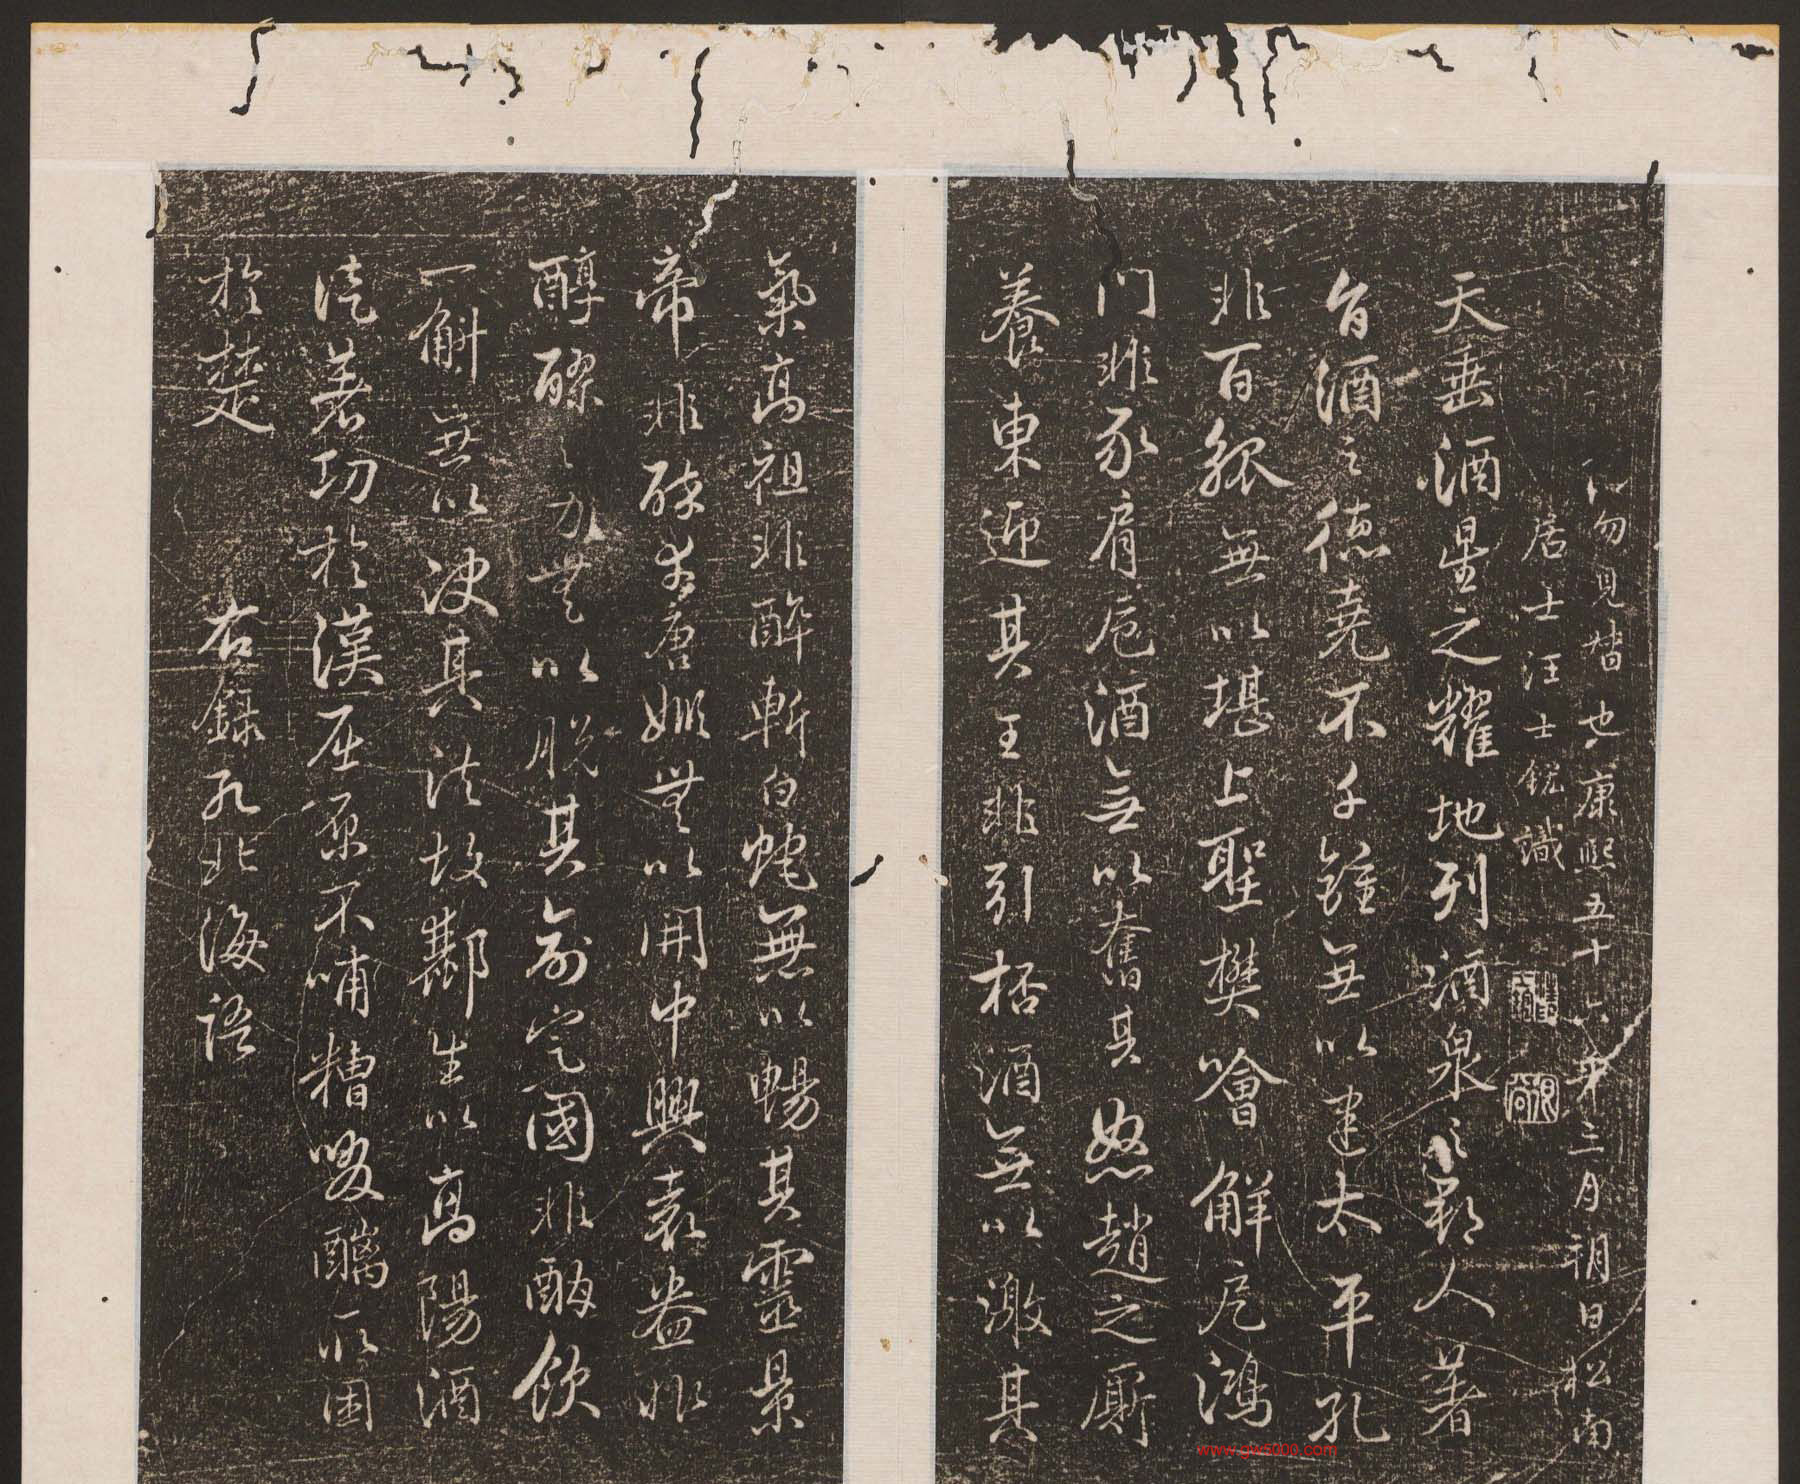 勿見
也康熙五十六年三月朔日松南
居士汪士鋐識
天垂酒星之耀地列酒泉之郡人著
旨酒之德堯不千鍾無以建太平孔
非百觚無以堪上聖樊噲解卮鴻
門非豕肩卮酒無以奮其怒趙之廝
養東迎其王非引梧酒無以激其
氣高祖非醉斬白蛇無以暢其靈景
帝非醉幸唐姬無以開中興袁盎非
醇醪之力無以脫其命定國非酣飲
一斛無以決其法故酈生以高陽酒
徒著功於漢屈原不哺糟啜醨取困
於楚
右錄孔北海語
www.gw5000.com